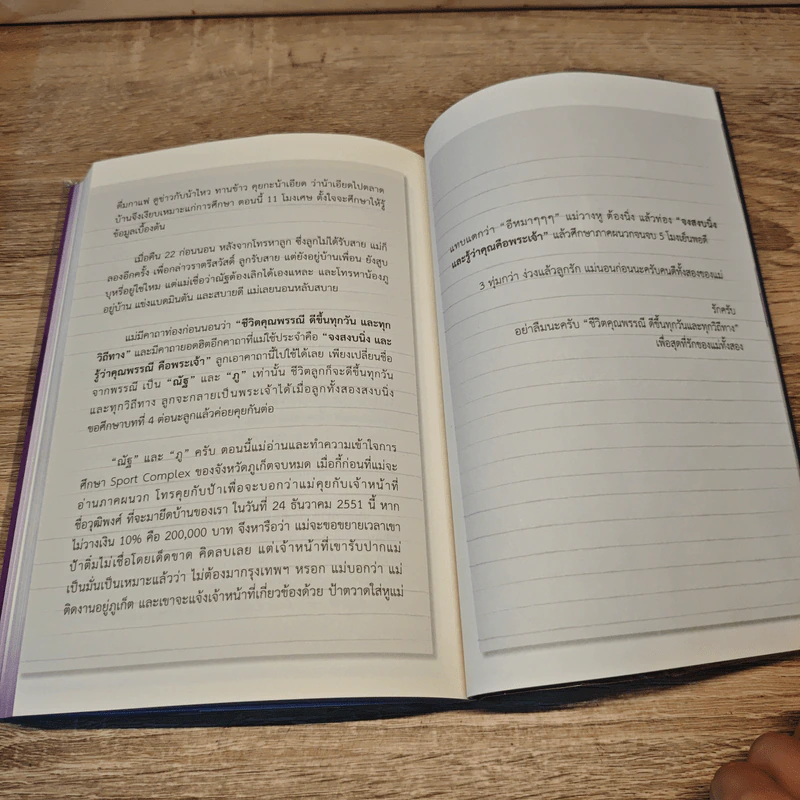 ดื่มกาแฟ ดูข่าวกับน้าไหว ทานข้าว คุยกะน้าเอียด ว่าน้าเอียดไปตลาด
บ้านจึงเงียบเหมาะแก่การศึกษา ตอนนี้ 11 โมงเศษ ตั้งใจจะศึกษาให้รู้
ข้อมูลเบื้องต้น
เมื่อคืน 22 ก่อนนอน หลังจากโทรหาลูก ซึ่งลูกไม่ได้รับสาย แม่ก็
ลองอีกครั้ง เพื่อกล่าวราตรีสวัสดิ์ ลูกรับสาย แต่ยังอยู่บ้านเพื่อน ยังสูบ
บุหรี่อยู่ใช่ไหม แต่แม่เชื่อว่าณัฐต้องเลิกได้เองแหละ และโทรหาน้องภู
อยู่บ้าน แข่งแบดมินตัน และสบายดี แม่เลยนอนหลับสบาย
แม่มีคาถาท่องก่อนนอนว่า “ชีวิตคุณพรรณี ดีขึ้นทุกวัน และทุก
วิถีทาง” และมีคาถายอดฮิตอีกคาถาที่แม่ใช้ประจำคือ “จงสงบนิ่ง และ
รู้ว่าคุณพรรณี คือพระเจ้า” ลูกเอาคาถานี้ไปใช้ได้เลย เพียงเปลี่ยนชื่อ
จากพรรณี เป็น “ณัฐ” และ “ภู” เท่านั้น ชีวิตลูกก็จะดีขึ้นทุกวัน
และทุกวิถีทาง ลูกจะกลายเป็นพระเจ้าได้เมื่อลูกทั้งสองสงบนิ่ง
ขอศึกษาบทที่ 4 ต่อนะลูกแล้วค่อยคุยกันต่อ
“ณัฐ” และ “ภู” ครับ ตอนนี้แม่อ่านและทำความเข้าใจการ
ศึกษา Sport Complex ของจังหวัดภูเก็ตจบหมด เมื่อกี้ก่อนที่แม่จะ
อ่านภาคผนวก โทรคุยกับป้าเพื่อจะบอกว่าแม่คุยกับเจ้าหน้าที่
ชื่อวุฒิพงศ์ ที่จะมายึดบ้านของเรา ในวันที่ 24 ธันวาคม 2551 นี้ หาก
ไม่วางเงิน 10% คือ 200,000 บาท จึงหารือว่า แม่จะขอขยายเวลาเขา
ป้าติ่มไม่เชื่อโดยเด็ดขาด คิดลบเลย แต่เจ้าหน้าที่เขารับปากแม่
เป็นมั่นเป็นเหมาะแล้วว่า ไม่ต้องมากรุงเทพฯ หรอก แม่บอกว่า แม่
ติดงานอยู่ภูเก็ต และเขาจะแจ้งเจ้าหน้าที่เกี่ยวข้องด้วย ป้าตวาดใส่หูแม่
แทบแตกว่า “อีหมาๆๆๆ” แม่วางหู ต้องนิ่ง แล้วท่อง “จงสงบนิ่ง
และรู้ว่าคุณคือพระเจ้า” แล้วศึกษาภาคผนวกจนจบ 5 โมงเย็นพอดี
3 ทุ่มกว่า ง่วงแล้วลูกรัก แม่นอนก่อนนะครับคนดีทั้งสองของแม่
รักครับ
อย่าลืมนะครับ “ชีวิตคุณพรรณี ดีขึ้นทุกวันและทุกวิถีทาง”
เพื่อสุดที่รักของแม่ทั้งสอง